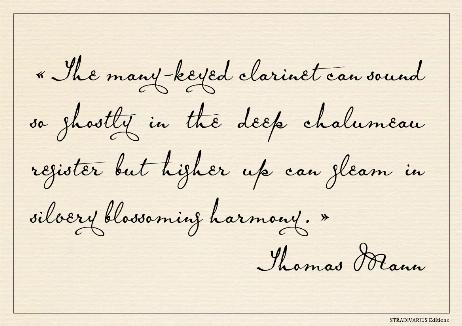 « The many-keyed clarinet can sound
so ghostly in the deep chalumeau
register but higher up can gleam in
silvery blossoming harmony. »
Thomas Mann
STRADIVARIUS Editions